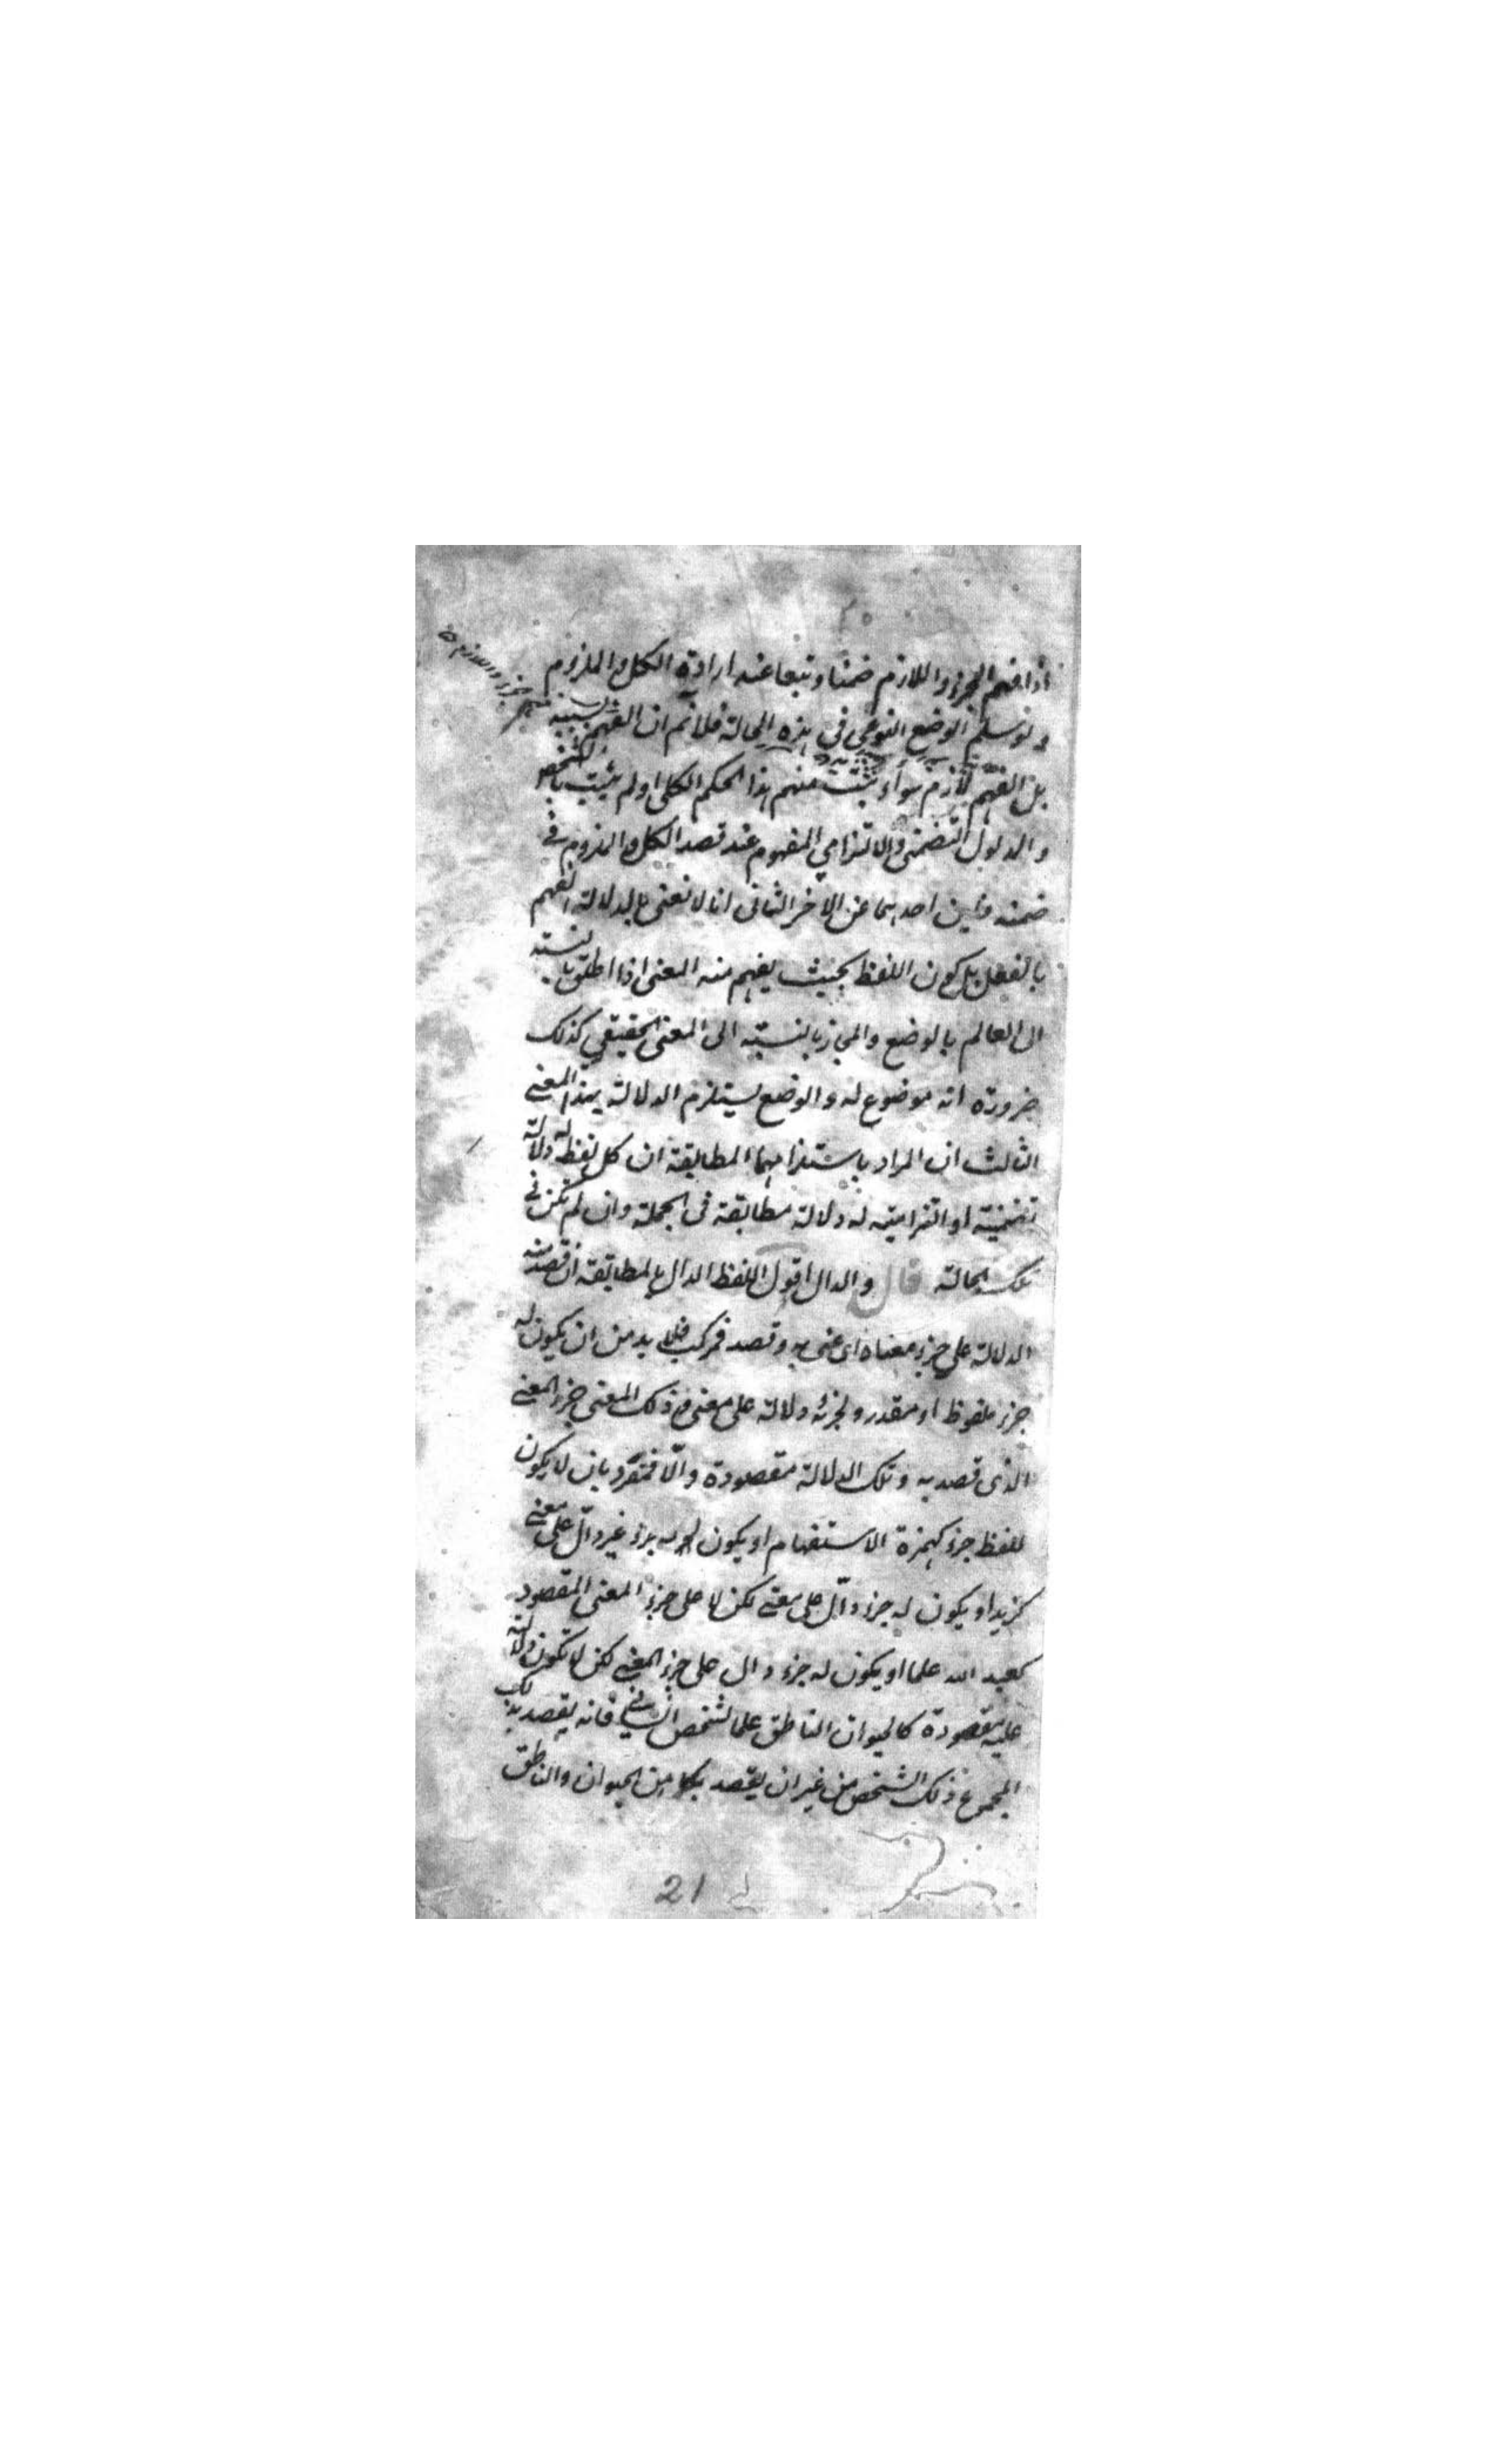 اذا فهم الجزء واللازم ضمنا وتبعا عند ارادة الكل والملزوم
ولو سلم الوضع النوعى فى هذه الحالة فلا نم ان الفهم بسببه
بل الفهم لازم سواء ثبت منهم هذا الحكم الكلى او لم يثبت بالشخص
والمدلول التضمنى والالتزامى المفهوم عند قصد الكل والملزوم فى
ضمنه واين احدهما عن الاخر الثانى انا لا نعنى بالدلالة الفهم
بالفعل بل كون اللفظ بحيث يفهم منه المعنى اذا اطلق بالنسبة
الى العالم بالوضع والمجاز بالنسبة الى المعنى الحقيقى كذلك
ضرورة انه موضوع له والوضع يستلزم الدلالة بهذا المعنى
الثالث ان المراد باستلزامهما المطابقة ان كل لفظ له دلالة
تضمنية او التزامية له دلالة مطابقة فى الجملة وان لم تكن فى
تلك الحالة قال والدال اقول اللفظ الدال بالمطابقة ان قصد منه
الدلالة على جزء معناه اى عنى به وقصد فمركب فلا بد من ان يكون له
جزء ملفوظ او مقدر ولجزئه دلالة على معنى وذلك المعنى جزء المعنى
الذى قصد به وتلك الدلالة مقصودة والّا فمفرد بان لا يكون
للفظ جزء كهمزة الاستفهام او يكون له جزء غير دالّ على معنى
كزيد او يكون له جزء دالّ على معنى لكن لا على جزء المعنى المقصود
كعبد الله علما او يكون له جزء دال على جزء المعنى لكن لا تكون دلالته
عليه مقصودة كالحيوان الناطق علما لشخص انسانى فانه يقصد به
المجموع ذلك الشخص من غير ان يقصد بكل من الحيوان والناطق
21